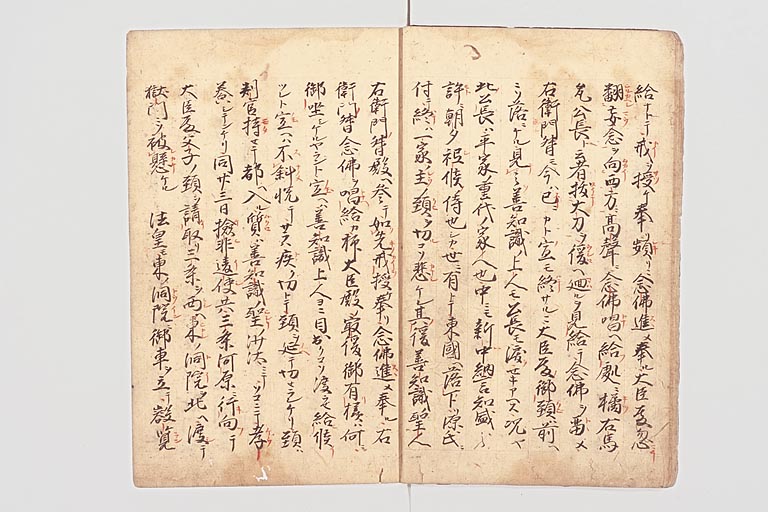 給ヒテ戒ヲ授ケ奉ツ頻リニ念佛進メ奉ル大臣殿忽
翻妄念ヲ向西方ニ高聲ニ念佛唱ヘ給處ニ橘右馬
允公長ト云者拔大刀ヲ後ヘ廻ルヲ見給テ念佛ヲ留メ
右衛門督モ今ハ已カト宣モ終サルニ大臣殿御頸前ヘ
ソ落ニケル見之善知識ノ上人モ公長モ涙セキアヘス況ヤ
此公長ハ平家重代家人也中ニモ新中納言知盛ノ
許ニ朝夕祗候ノ侍也シカ世ニ有トテ東國ヘ落下ツ源氏ニ
付テ終ニ一家ノ主ノ頸ヲ切コソ悲ケレ其後善知識聖人
右衛門督殿ヘ参テ如先戒授奉リ念佛進メ奉ル右
衛門督念佛ヲ唱給カ抑大臣殿ノ最後御有樣ハ何ニ
御坐シケルヤラント宣ヘハ善知識上人ヨニ目出カリコソ渡セ給候
ツレト宣ヘハ不斜悦テサラハ疾ク切トテ頸ヲ延テ切セラレケリ頸ハ
判官持セテ都ヘ入ル質ハ善知識ノ聖沙汰ニテソコニテ孝
養シテンケリ同廿三日撿非違使共三条河原ニ行向テ
大臣殿父子ノ頸ヲ請取三条ヲ西ヘ東ノ洞院ヲ北ヘ渡シテ
獄門ニソ被懸ケル 法皇モ東ノ洞院ニ御車ヲ立テ叡覧